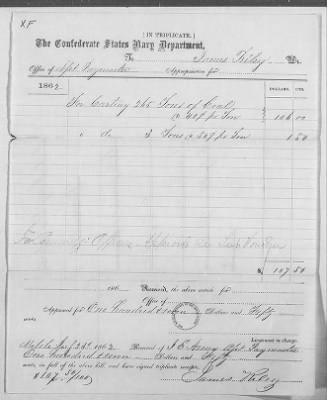 X.F
[IN TRIPLICATE.]
The Confederate States Navy Department,
To James Riley Dr.
Office of Asst Paymaster Appropriation for
1862 DOLLARS. CTS.
For Carting 265 Tons of Coal
@ 40¢ pr Ton 106 00
" do 3 Tons @ 50¢ pr Ton 1 50
$ 107 50
186 Received, the above articles for
Office of
Approved for One hundred & seven Dollars and Fifty
Lieutenant in charge.
Mobile 24th 1862 Received of Asst Paymaster
One hundred & seven Dollars and Fifty
cents, in full of the above bill, and have signed triplicate receipts.
$107 50/100 James Riley